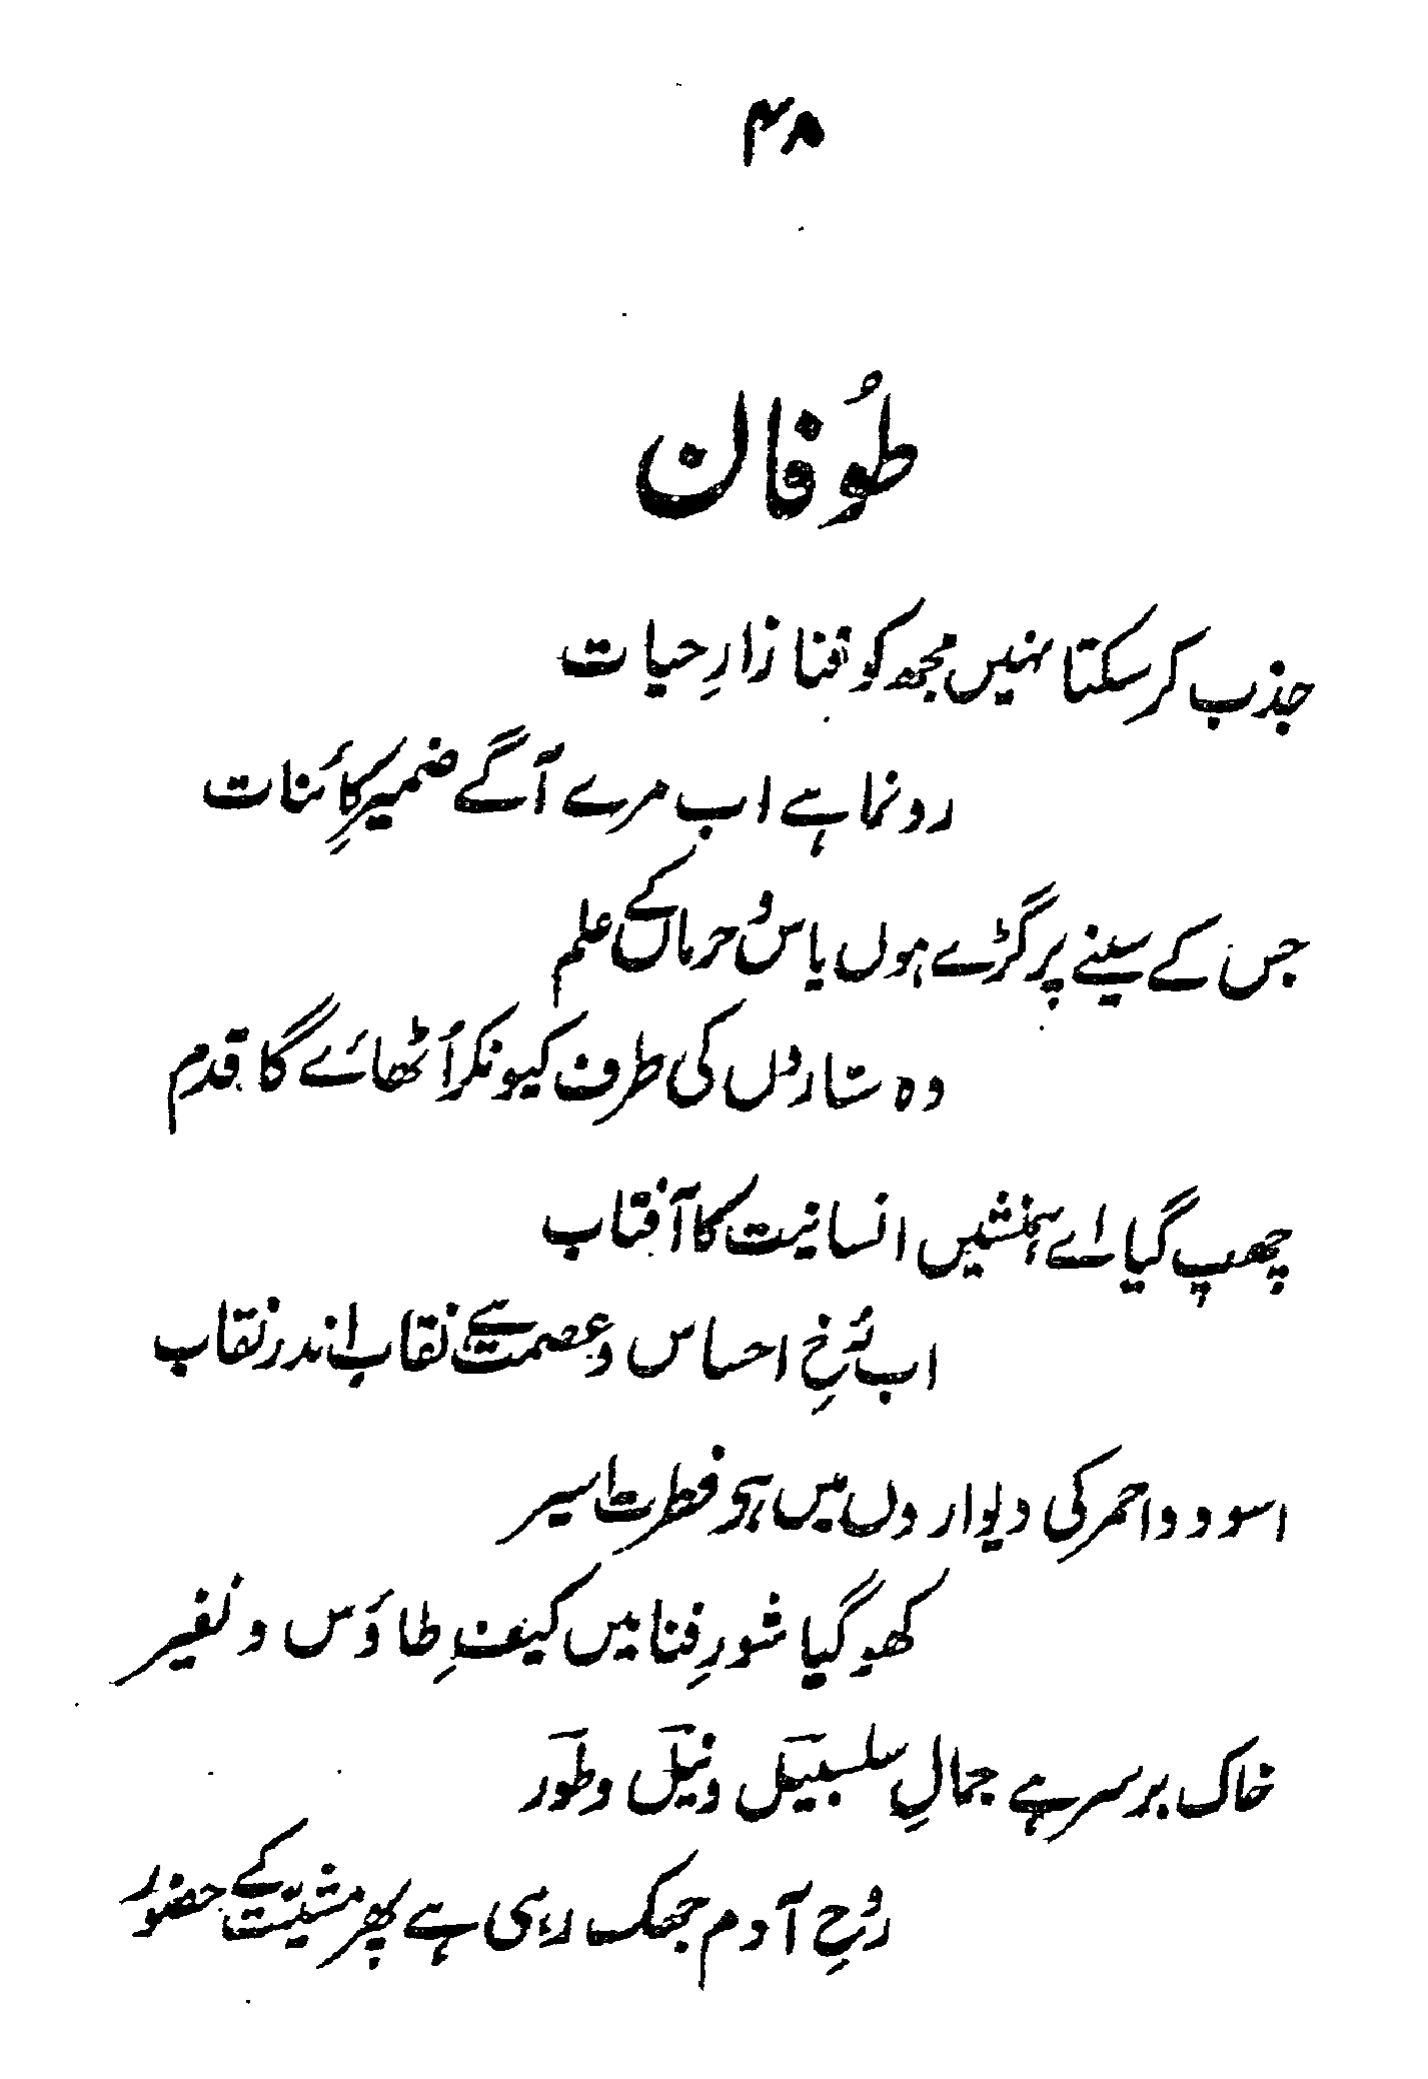 ۴۸
طُوفان
جذب کر سکتا نہیں مجھ کو فنا زارِ حیات
رونما ہے اب مرے آگے ضمیرِ کائنات
جس کے سینے پر گڑے ہوں یاس و حرماں کے علم
وہ ستاروں کی طرف کیونکر اُٹھائے گا قدم
چھپ گیا اے ہمنشیں انسانیت کا آفتاب
اب رُخِ احساس و عصمت ہے نقاب اندر نقاب
اسود و احمر کی دیواروں میں ہے فطرت اسیر
کھو گیا شورِ فنا میں کیفِ طاؤس و نفیر
خاک بر سر ہے جمالِ سلسبیل و نیل و طور
رُوحِ آدم جھک رہی ہے پھر مشیّت کے حضور